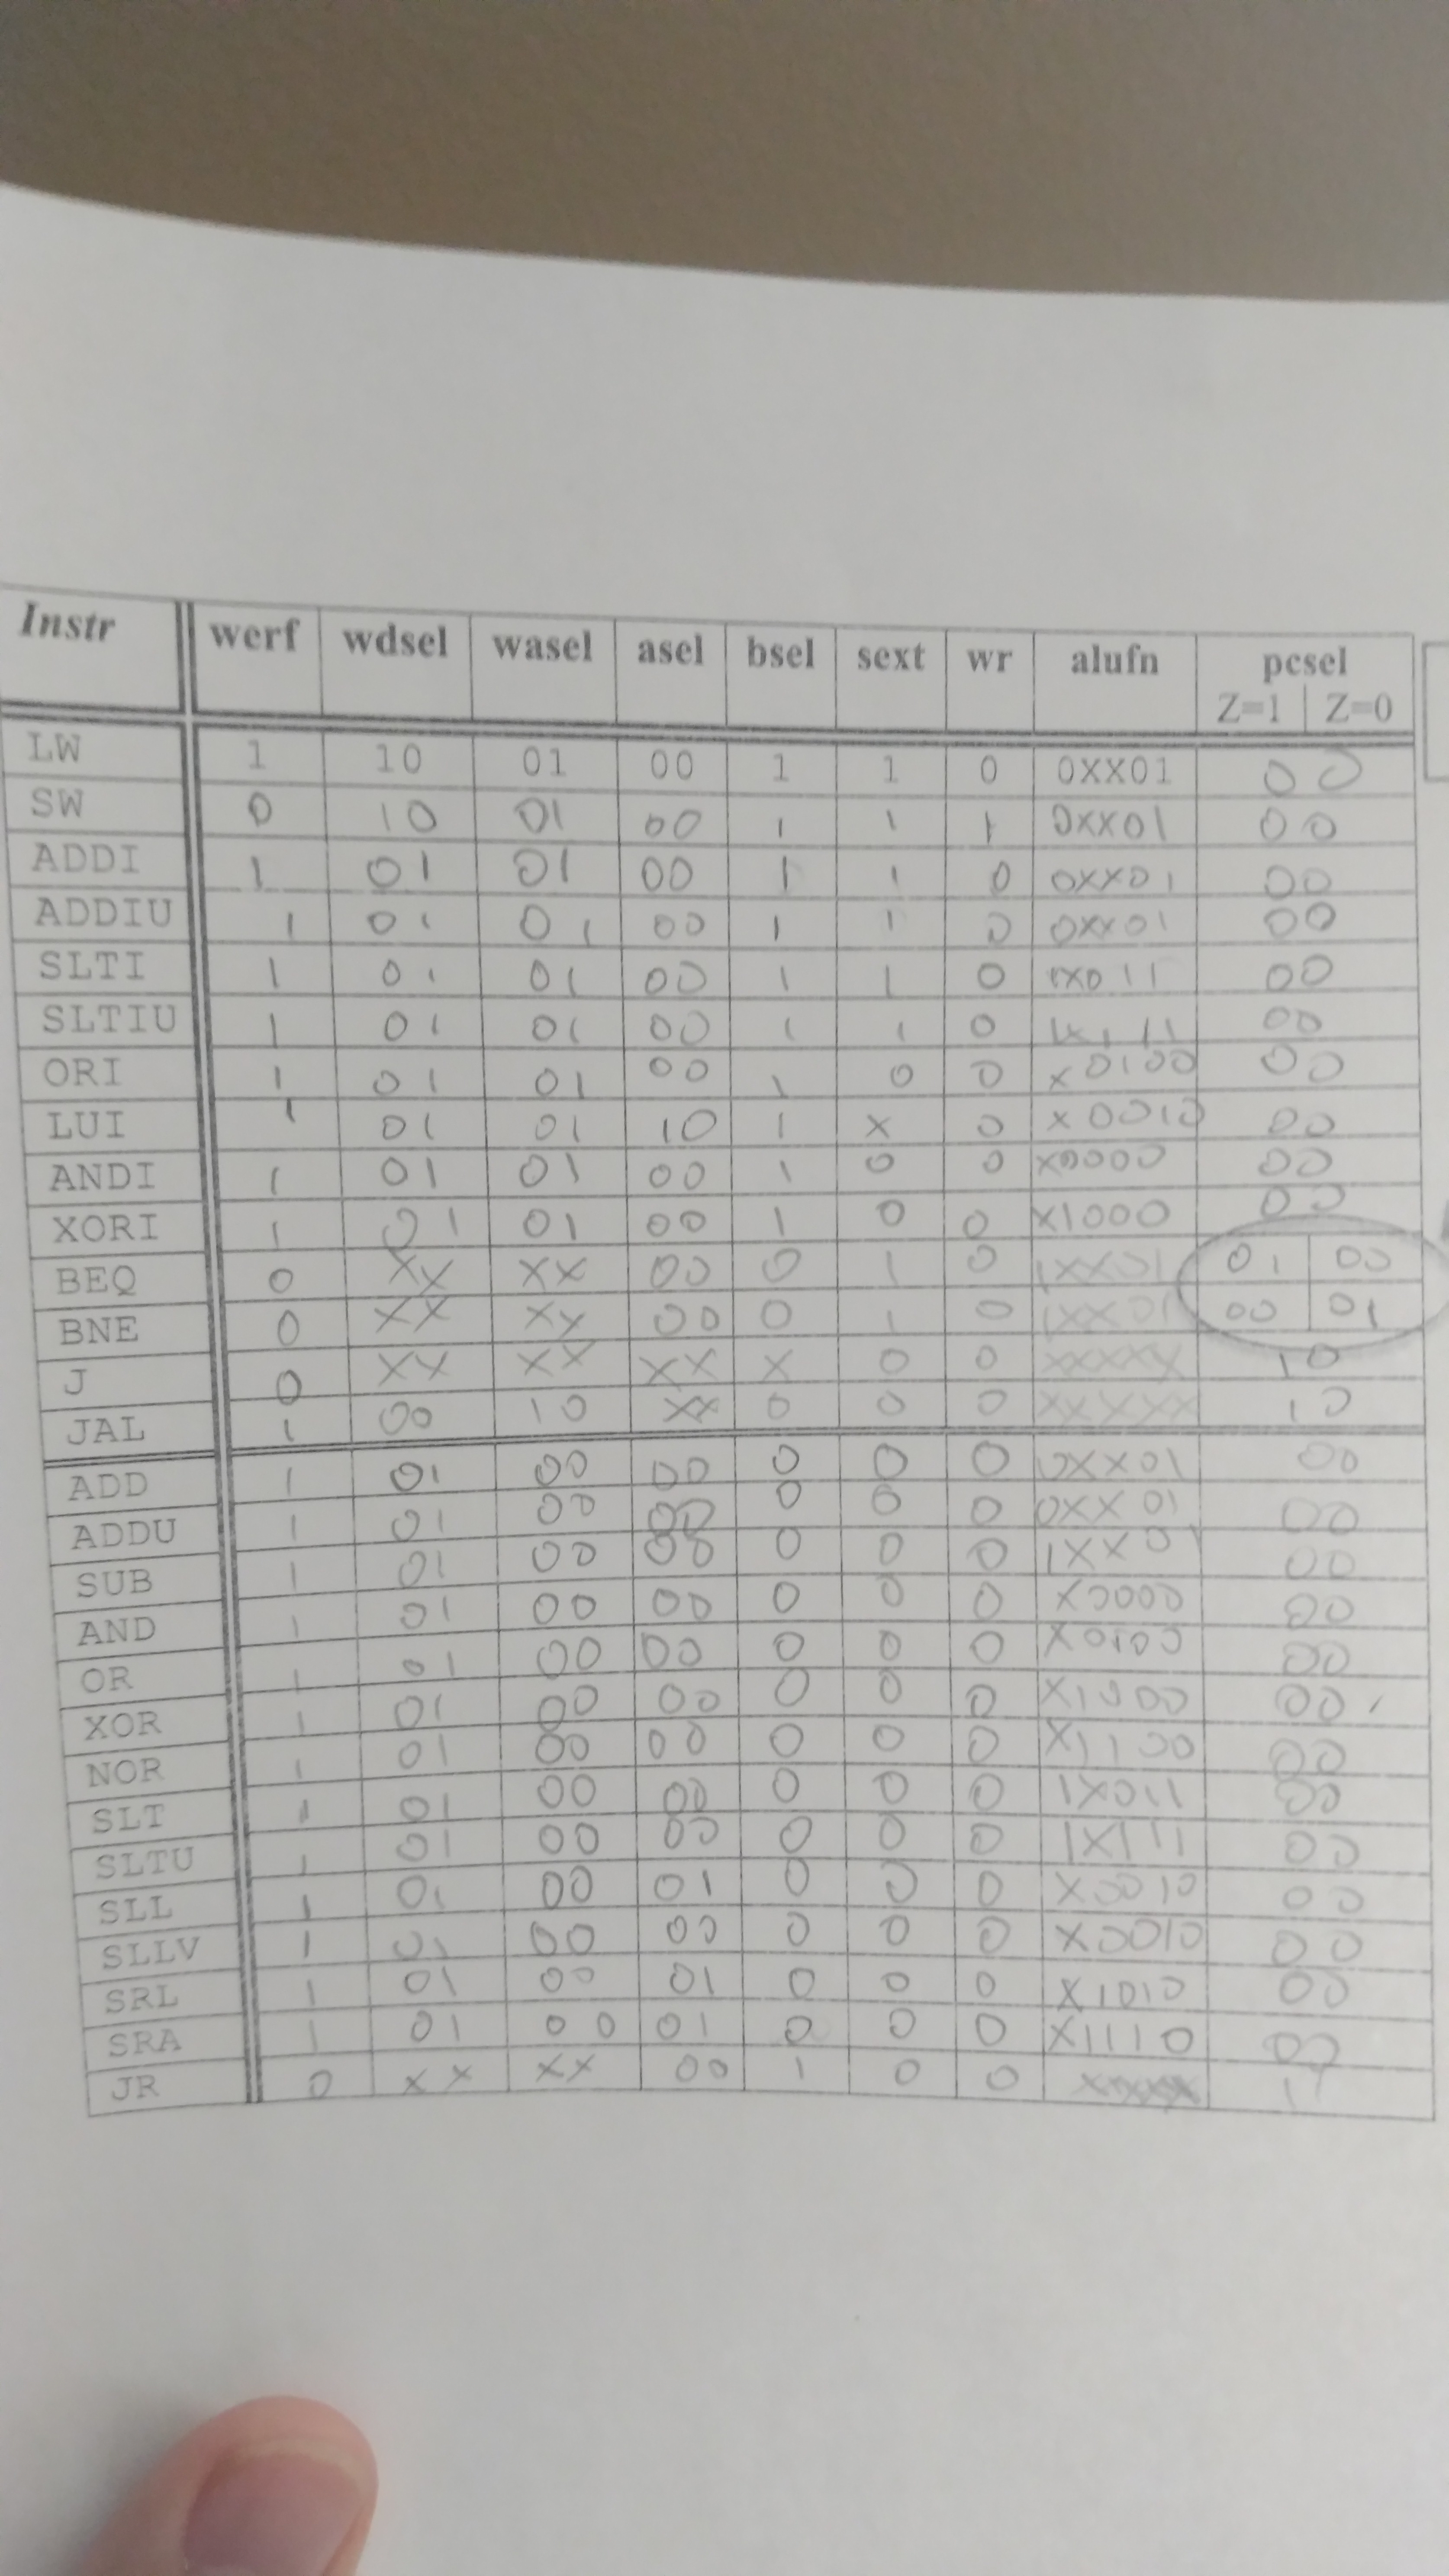 Instr werf wdsel wasel asel bsel sext wr alufn pcsel
Z=1 Z=0
LW 1 10 01 00 1 1 0 0XX01 00
SW 0 10 01 00 1 1 1 0XX01 00
ADDI 1 01 01 00 1 1 0 0XX01 00
ADDIU 1 01 01 00 1 1 0 0XX01 00
SLTI 1 01 01 00 1 1 0 1X011 00
SLTIU 1 01 01 00 1 1 0 1X111 00
ORI 1 01 01 00 1 0 0 X0100 00
LUI 1 01 01 10 1 X 0 X0010 00
ANDI 1 01 01 00 1 0 0 X0000 00
XORI 1 01 01 00 1 0 0 X1000 00
BEQ 0 XX XX 00 0 1 0 1XX01 01 00
BNE 0 XX XX 00 0 1 0 1XX01 00 01
J 0 XX XX XX X 0 0 XXXXX 10
JAL 1 00 10 XX 0 0 0 XXXXX 10
ADD 1 01 00 00 0 0 0 0XX01 00
ADDU 1 01 00 00 0 0 0 0XX01 00
SUB 1 01 00 00 0 0 0 1XX01 00
AND 1 01 00 00 0 0 0 X0000 00
OR 1 01 00 00 0 0 0 X0100 00
XOR 1 01 00 00 0 0 0 X1000 00
NOR 1 01 00 00 0 0 0 X1100 00
SLT 1 01 00 00 0 0 0 1X011 00
SLTU 1 01 00 00 0 0 0 1X111 00
SLL 1 01 00 01 0 0 0 X0010 00
SLLV 1 01 00 00 0 0 0 X0010 00
SRL 1 01 00 01 0 0 0 X1010 00
SRA 1 01 00 01 0 0 0 X1110 00
JR 0 XX XX 00 1 0 0 XXXXX 11